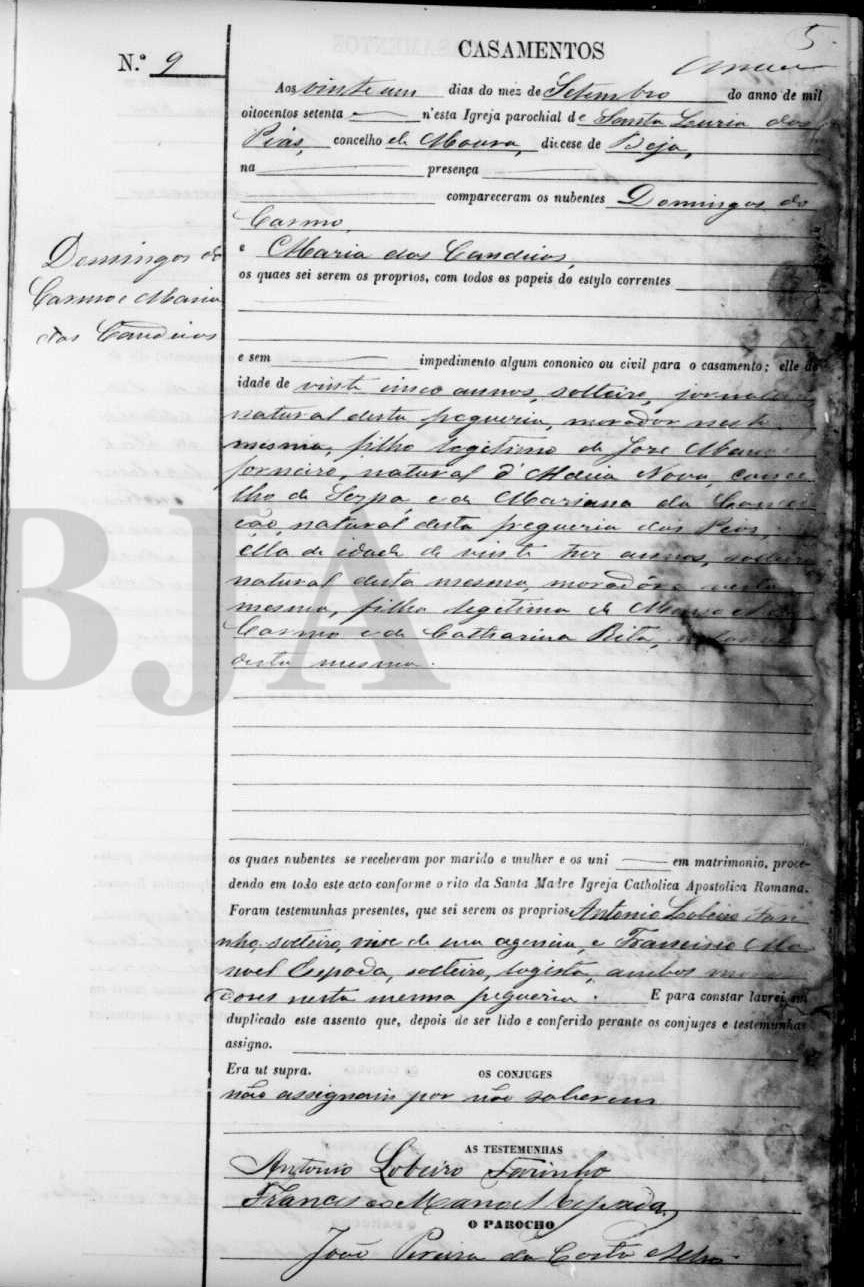 5
N.º 9
CASAMENTOS
Aos vinte um dias do mez de Setembro do anno de mil
oitocentos setenta n'esta Igreja parochial de Santa Luzia das
Pias, concelho de Moura, diocese de Beja,
na presença
compareceram os nubentes Domingos do
Carmo,
e Maria das Candeias,
os quaes sei serem os proprios, com todos os papeis do estylo correntes
Domingos do
Carmo e Maria
das Candeias
e sem impedimento algum cononico ou civil para o casamento; elle de
idade de vinte cinco annos, solteiro,
natural desta fregueria, morador nesta
mesma, filho legitimo de Jose
forneiro, natural d'Aldeia Nova, conce
lho de Serpa, e de Mariana da Conce
ção, natural desta fregueria das Pias,
élla de idade de vinte tres annos, solteira
natural desta mesma, moradôra nesta
mesma, filha legitima de
Carmo e de Catharina Rita,
desta mesma.
os quaes nubentes se receberam por marido e mulher e os uni em matrimonio, proce-
dendo em todo este acto conforme o rito da Santa Madre Igreja Catholica Apostolica Romana.
Foram testemunhas presentes, que sei serem os proprios Antonio Lobeiro Fari
nho, solteiro, vive de sua agencia, e Francisco Ma
noel Cepada, solteiro, logista, ambos mora
dores nesta mesma fregueria. E para constar lavrei em
duplicado este assento que, depois de ser lido e conferido perante os conjuges e testemunhas
assigno.
Era ut supra.
OS CONJUGES
não assignam por não saberem
AS TESTEMUNHAS
Antonio Lobeiro Farinho
Francisco Manoel Cepada
O PAROCHO
João Pereira da Costa
BJA